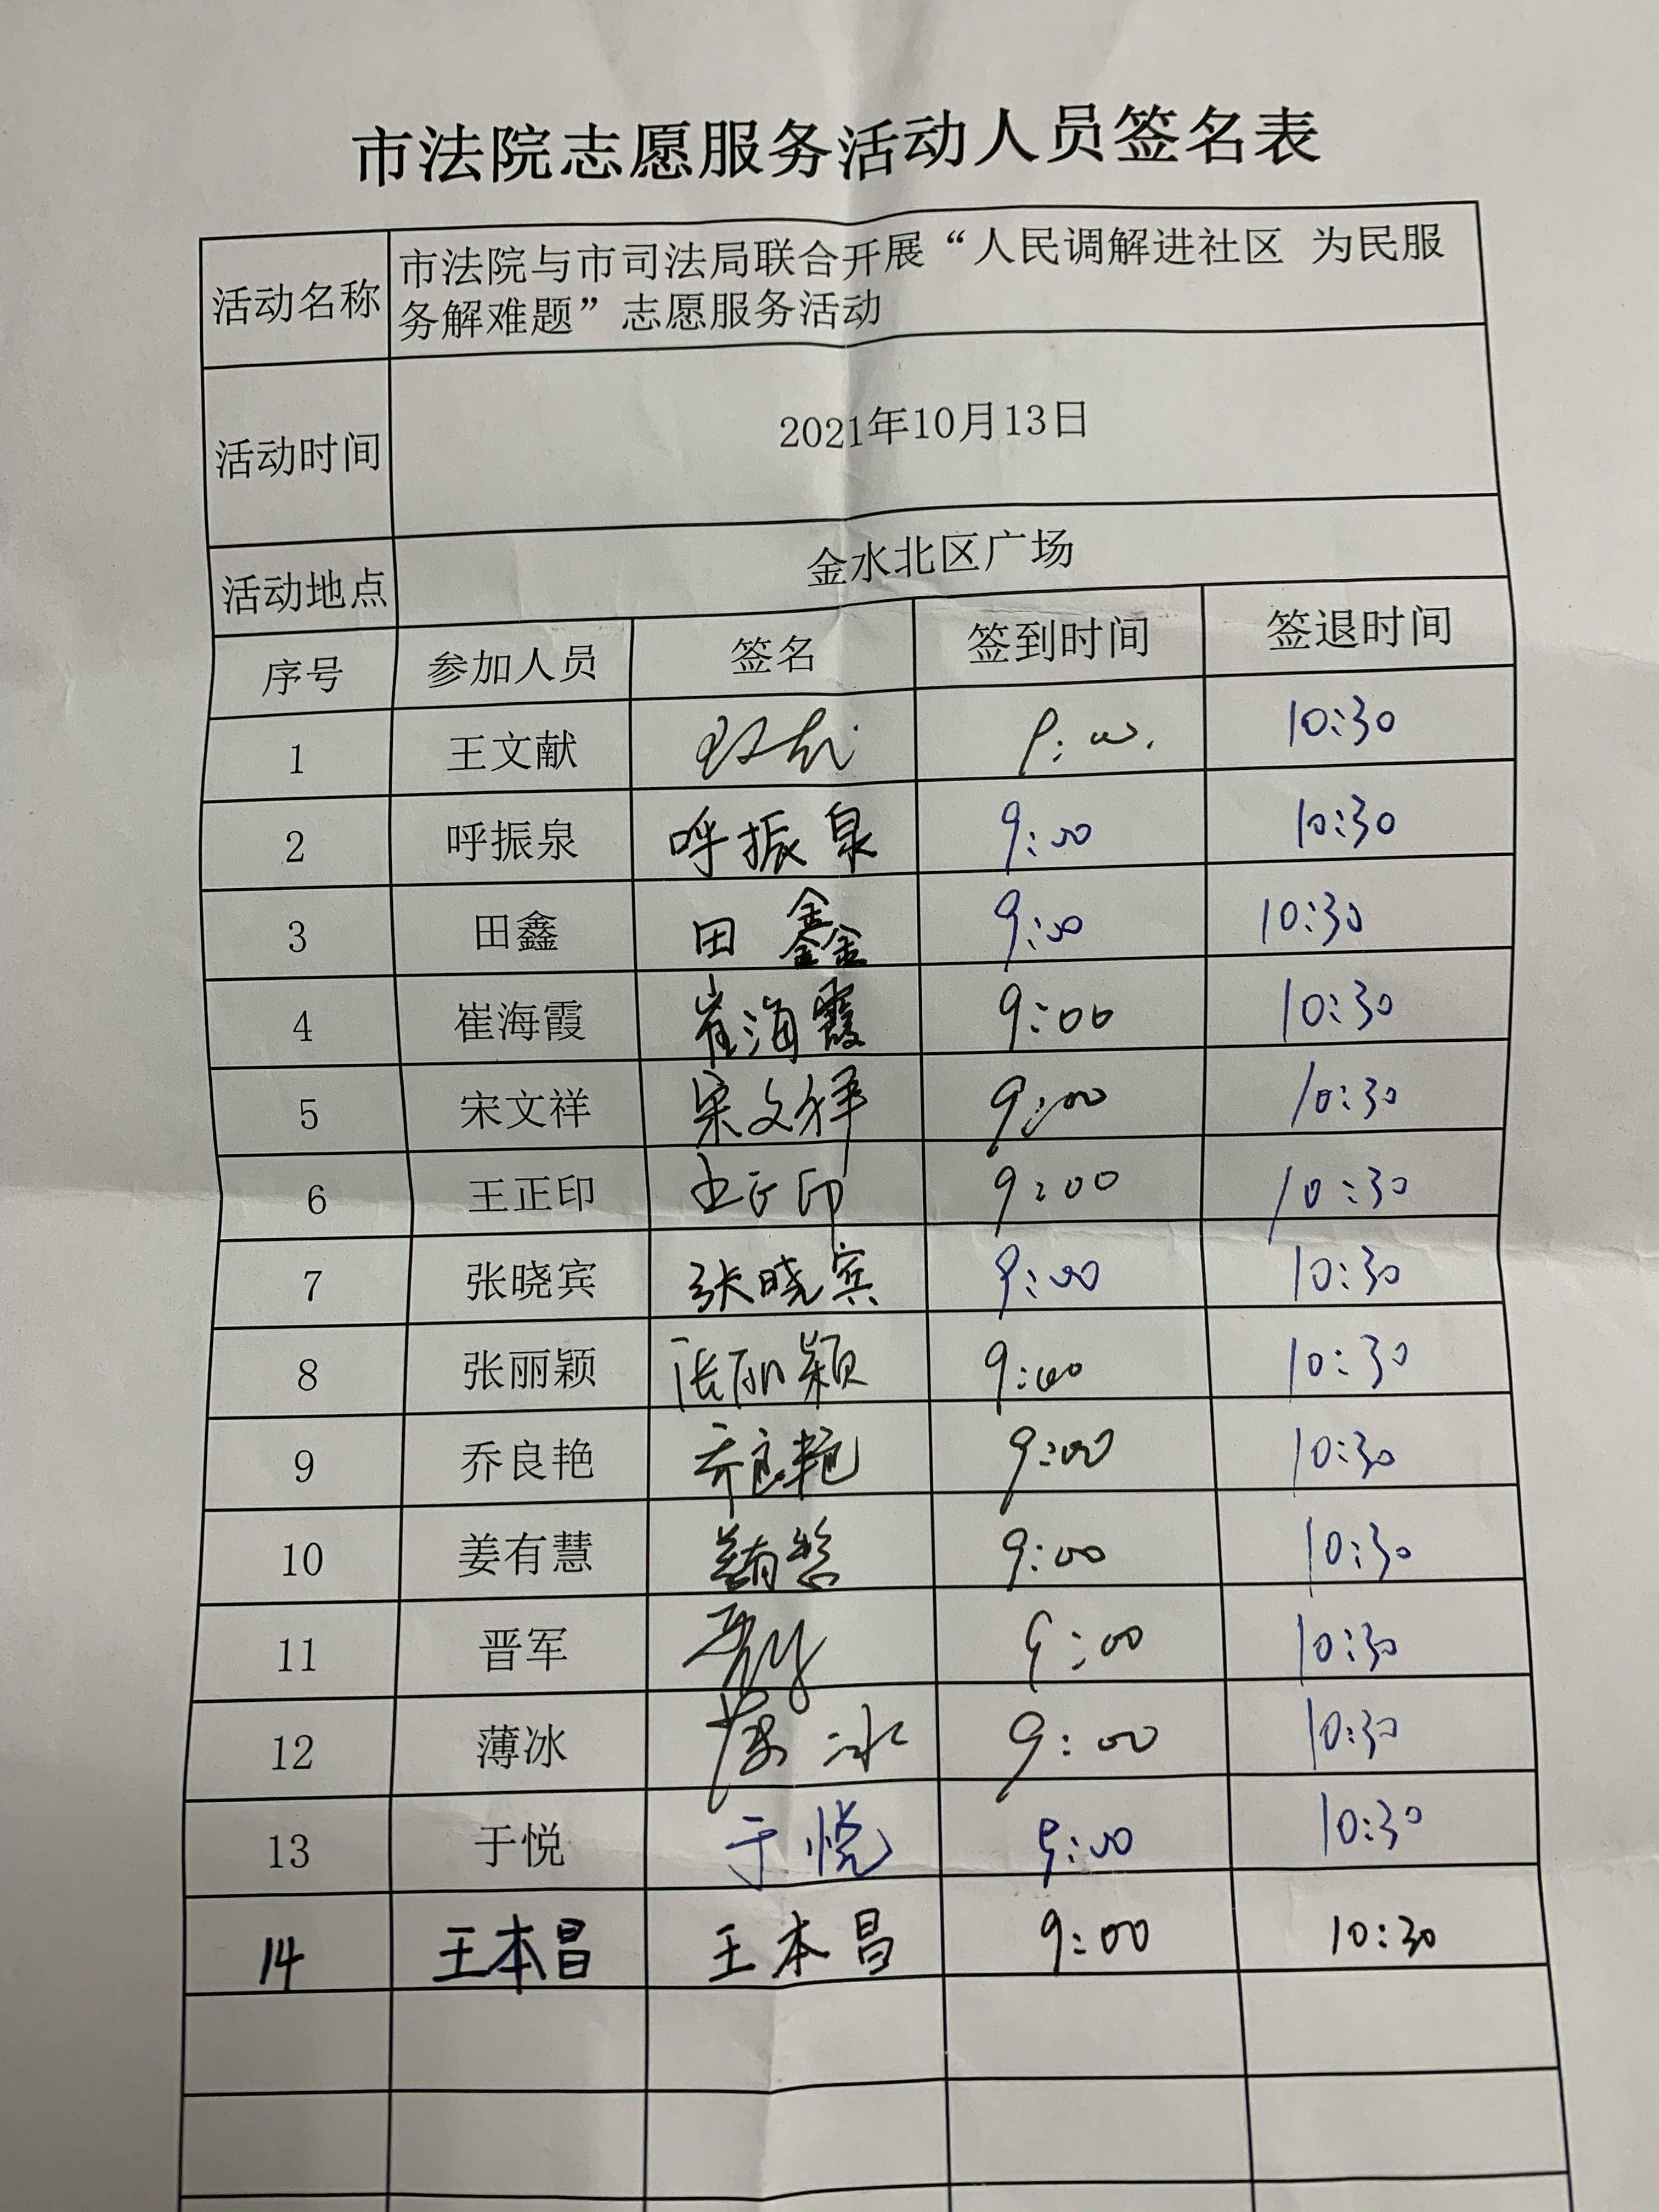 市法院志愿服务活动人员签名表
活动名称 市法院与市司法局联合开展“人民调解进社区 为民服
务解难题”志愿服务活动
活动时间 2021年10月13日
活动地点 金水北区广场
序号 参加人员 签名 签到时间 签退时间
1 王文献 9:00. 10:30
2 呼振泉 呼振泉 9:00 10:30
3 田鑫 田鑫 9:00 10:30
4 崔海霞 崔海霞 9:00 10:30
5 宋文祥 宋文祥 9:00 10:30
6 王正印 王正印 9:00 10:30
7 张晓宾 张晓宾 9:00 10:30
8 张丽颖 张丽颖 9:00 10:30
9 乔良艳 乔良艳 9:00 10:30
10 姜有慧 姜有慧 9:00 10:30
11 晋军 9:00 10:30
12 薄冰 薄冰 9:00 10:30
13 于悦 于悦 9:00 10:30
14 王本昌 王本昌 9:00 10:30